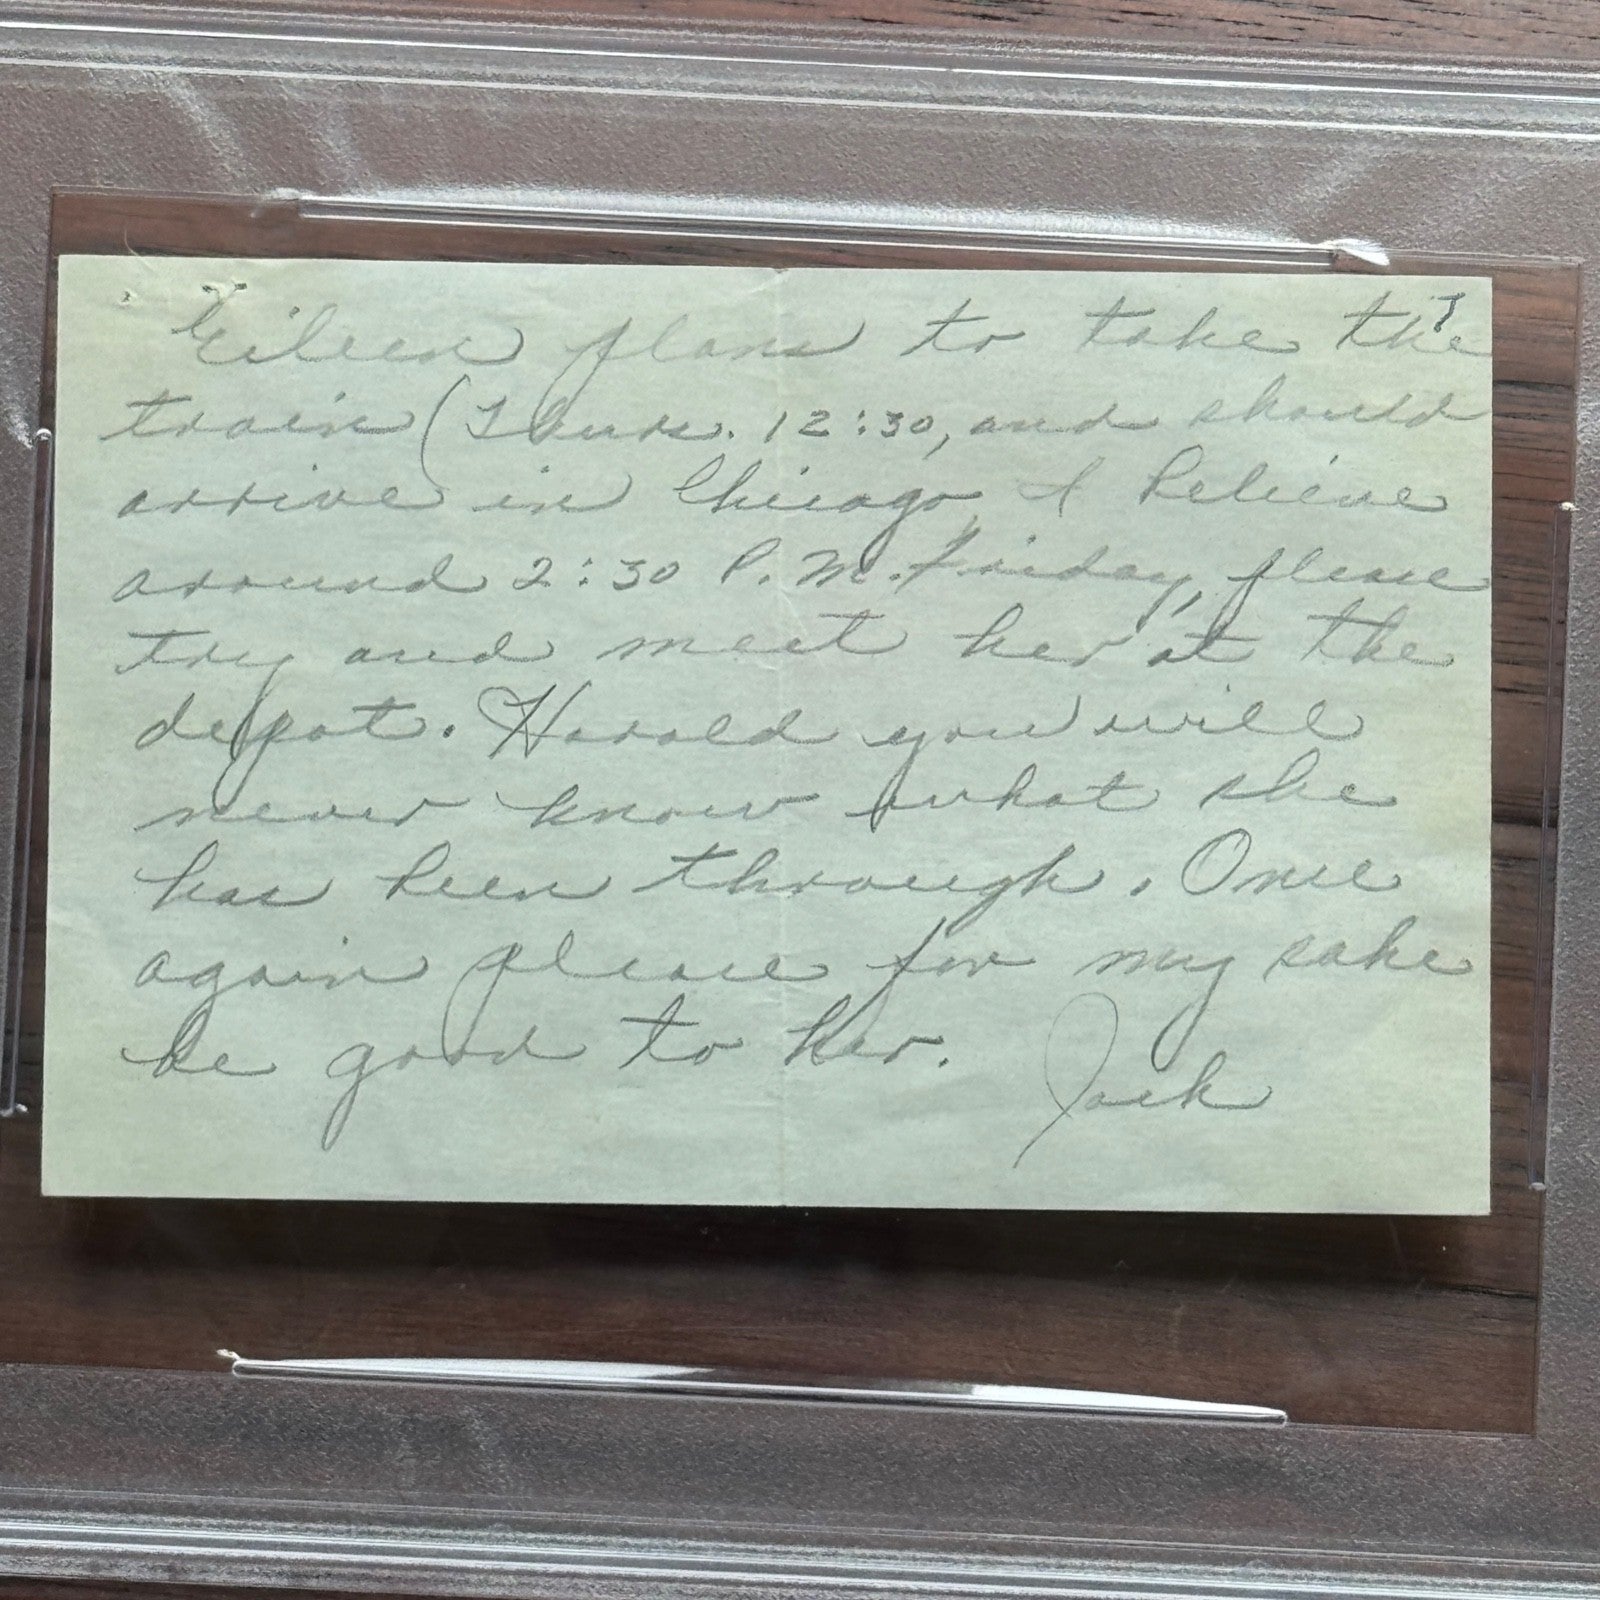 7
Eileen plans to take the
train (Thurs. 12:30, and should
arrive in Chicago, I believe
around 2:30 P.M. Friday, please
try and meet her at the
depot. Harold you will
never know what she
has been through. Once
again please for my sake
be good to her.
Jack